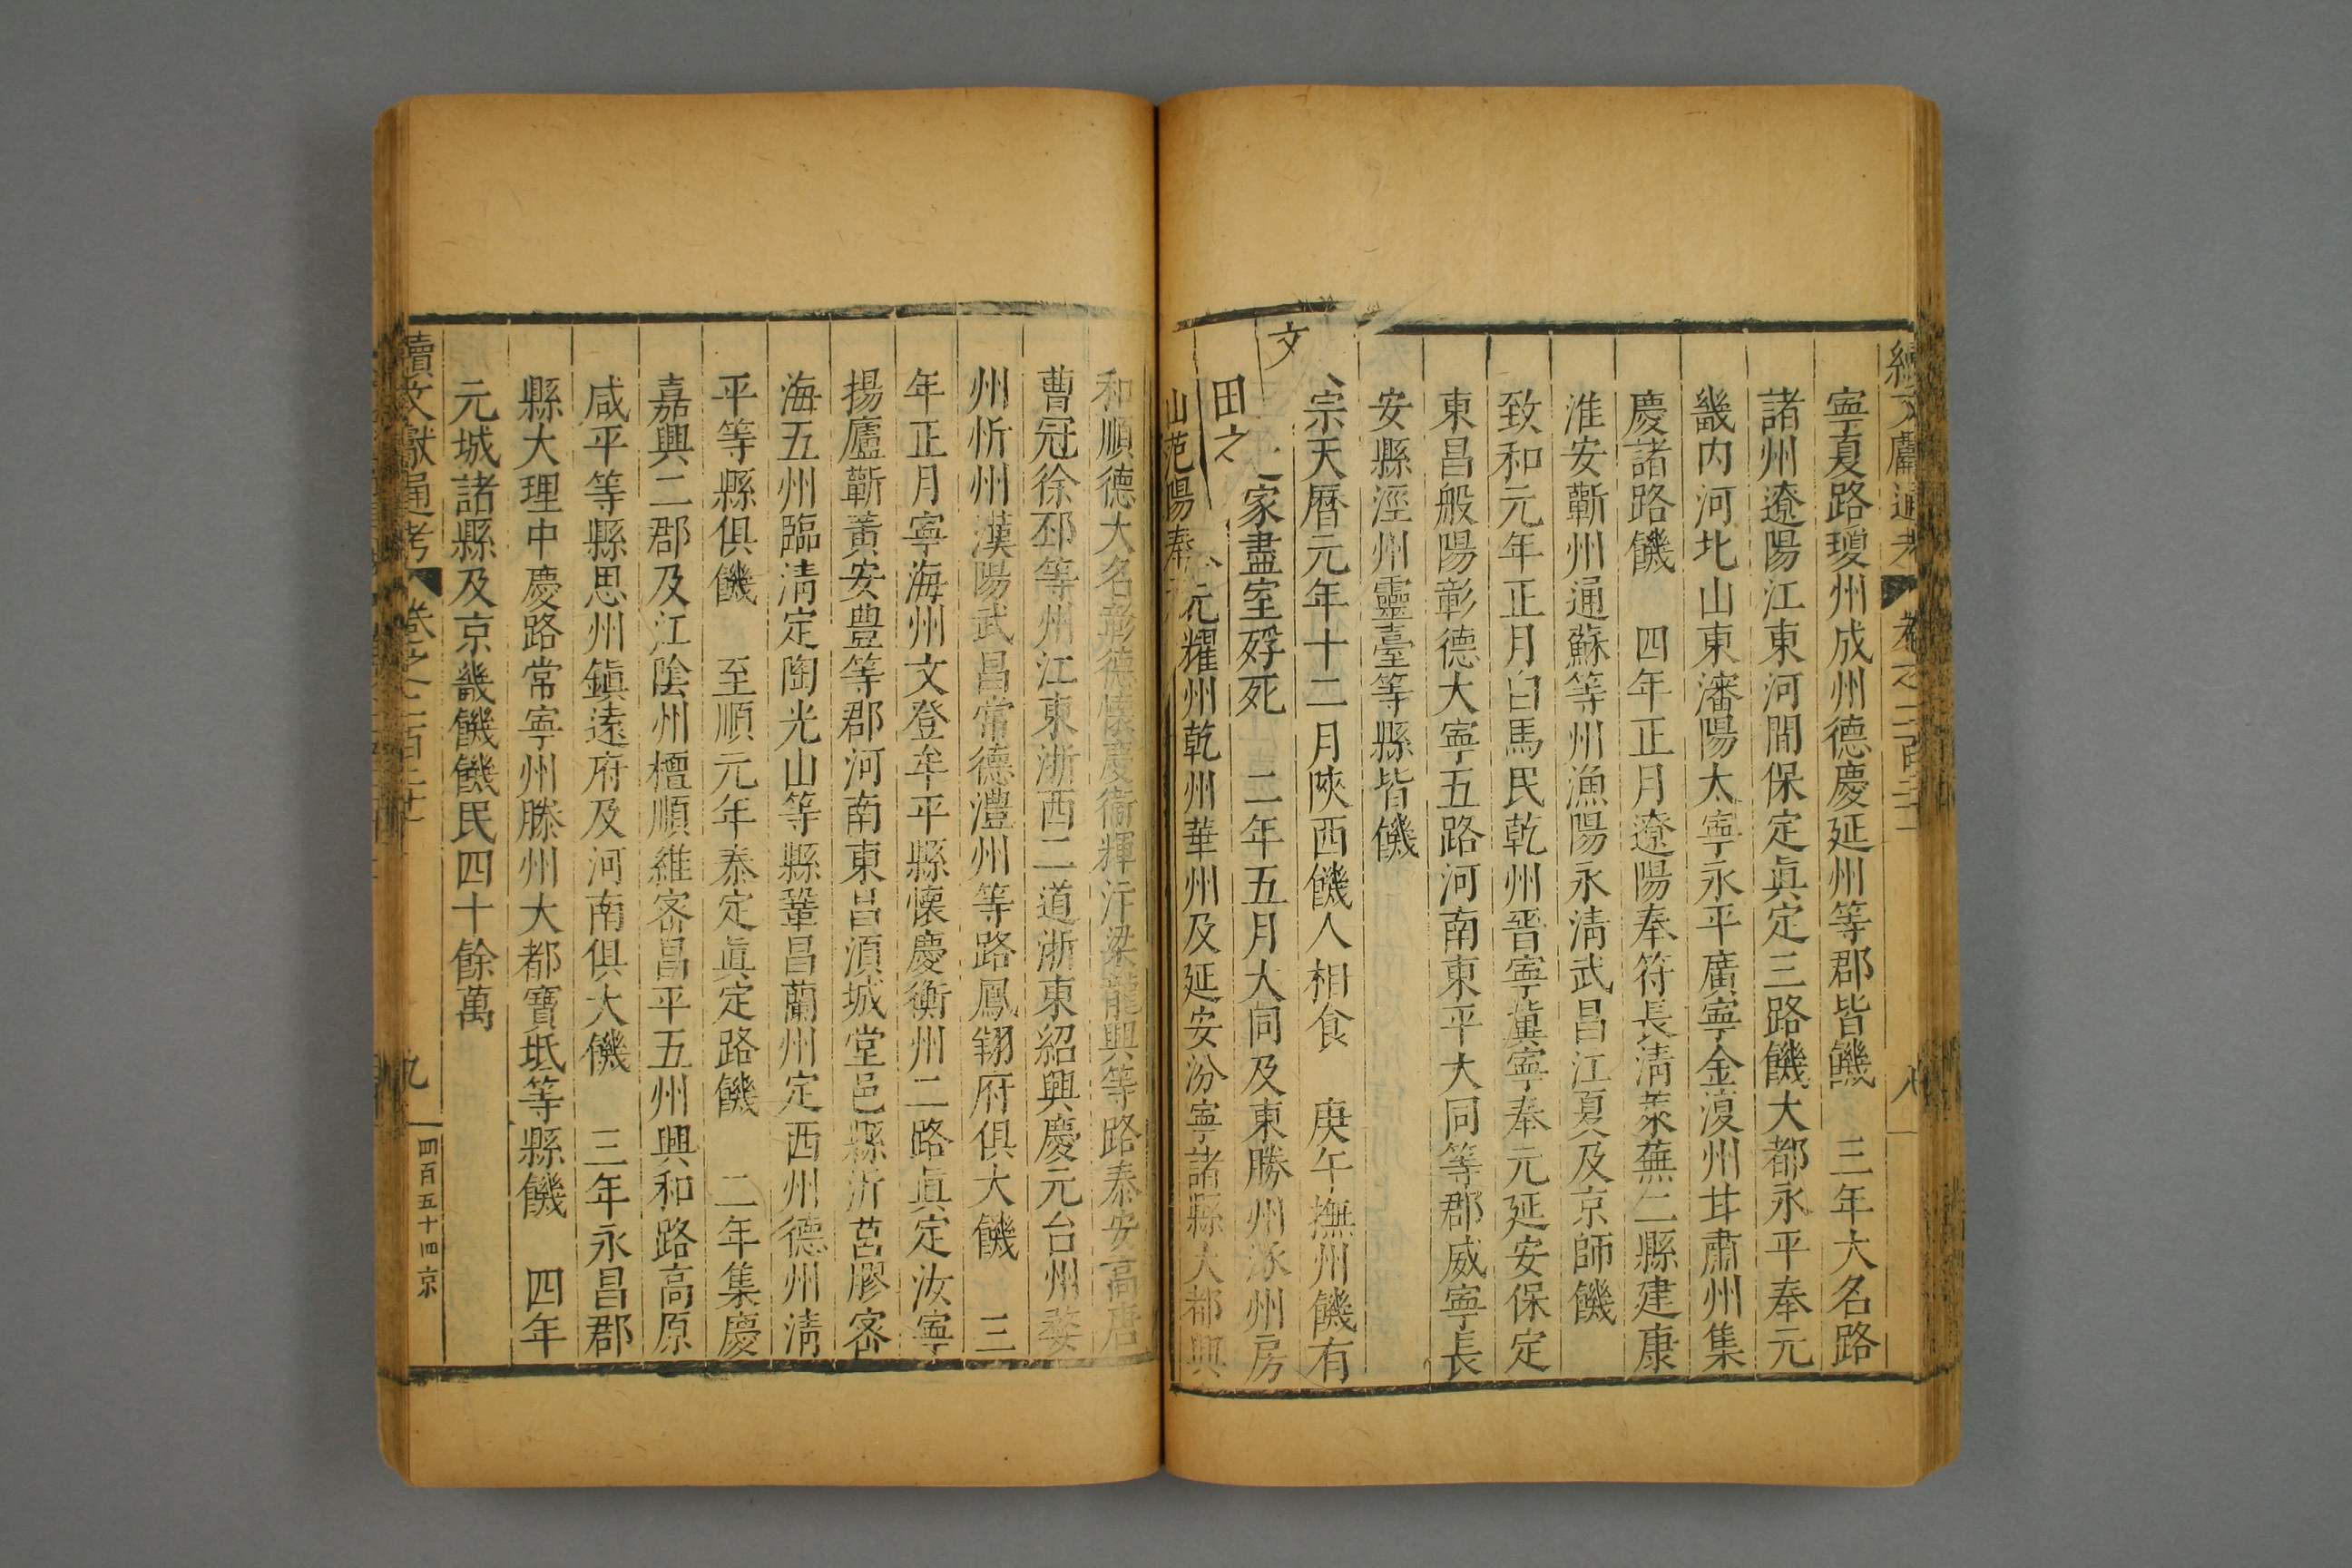 寧夏路瓊州成州德慶延州等郡皆饑　三年大名路
諸州遼陽江東河間保定真定三路饑大都永平奉元
畿內河北山東瀋陽太寧永平廣寧金復州甘肅州集
慶諸路饑　四年正月遼陽奉符長清萊蕪二縣建康
淮安蘄州通蘇等州漁陽永清武昌江夏及京師饑
致和元年正月白馬民乾州晉寧冀寧奉元延安保定
東昌般陽彰德大寧五路河南東平大同等郡威寧長
安縣涇州靈臺等縣皆饑
文宗天曆元年十二月陝西饑人相食　庚午撫州饑有
田之家盡室殍死　二年五月大同及東勝州涿州房
山范陽奉元耀州乾州華州及延安汾寧諸縣大都興
和順德大名彰德懷慶衛輝汴梁龍興等路泰安高唐
曹冠徐邳等州江東浙西二道浙東紹興慶元台州婺
州忻州漢陽武昌常德澧州等路鳳翔府俱大饑　三
年正月寧海州文登牟平縣懷慶衡州二路真定汝寧
揚廬蘄黃安豊等郡河南東昌須城堂邑縣沂莒膠密
海五州臨清定陶光山等縣鞏昌蘭州定西州德州清
平等縣俱饑　至順元年泰定真定路饑　二年集慶
嘉興二郡及江陰州檀順維密昌平五州興和路高原
咸平等縣思州鎮遠府及河南俱大饑　三年永昌郡
縣大理中慶路常寧州滕州大都寶坻等縣饑　四年
元城諸縣及京畿饑饑民四十餘萬
續文獻通考　卷之二百二十　九　四百五十四　京